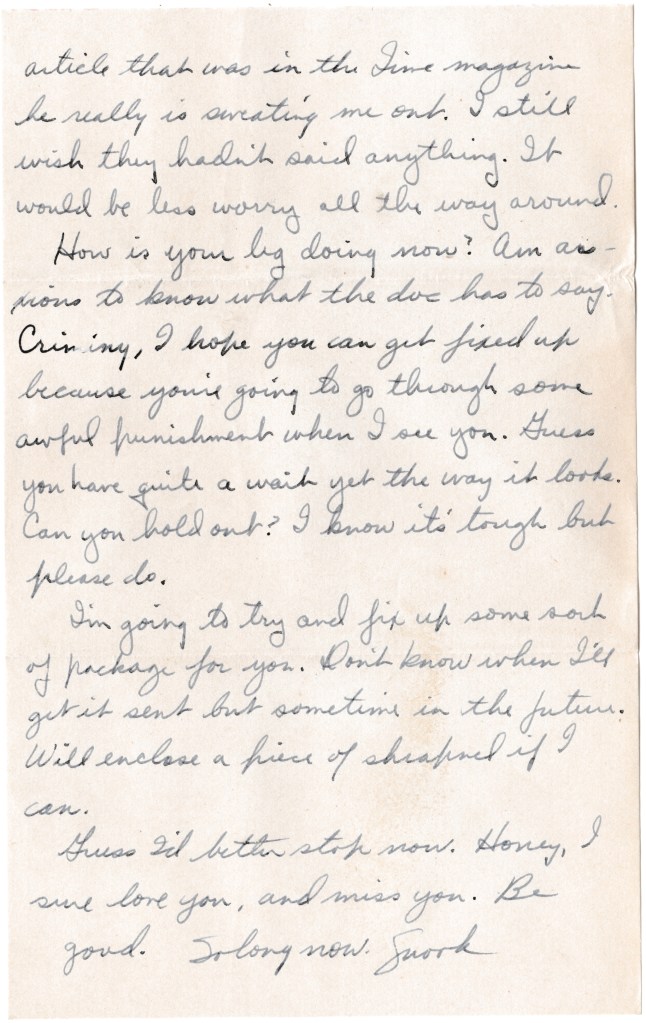 article that was in the Time magazine
he really is sweating me out. I still
wish they hadn't said anything. It
would be less worry all the way around.
How is your leg doing now? Am anx-
xious to know what the doc has to say.
Criminy, I hope you can get fixed up
because you're going to go through some
awful punishment when I see you. Guess
you have quite a wait yet the way it looks.
Can you hold out? I know it's tough but
please do.
I'm going to try and fix up some sort
of package for you. Don't know when I'll
get it sent but sometime in the future.
Will enclose a piece of shrapnel if I
can.
Guess I'd better stop now. Honey, I
sure love you, and miss you. Be
good. So long now. Snork